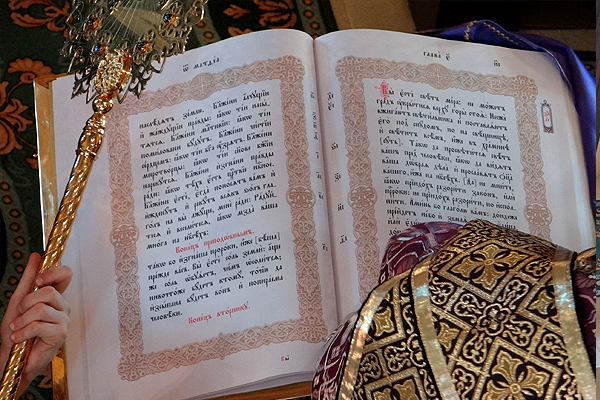 Ѿ МАТѲЕА
наслѣдѧтъ землю. Блажени алчꙋщїи
и жаждꙋщїи правды: ꙗкѡ тїи насы-
тѧтсѧ. Блажени милостивїи: ꙗкѡ тїи
помиловани бꙋдꙋтъ. Блажени чистїи
срⷣцемъ: ꙗкѡ тїи бг҃а ᲂузрѧтъ. Блажени
миротворцы: ꙗкѡ тїи сн҃ове бж҃їи
нарекꙋтсѧ. Блажени изгнани правды
ради: ꙗкѡ тѣхъ єсть црⷭтвїе нбⷭное.
Блажени єстѐ, єгда поносѧтъ вамъ, и
ижденꙋтъ, и рекꙋтъ всѧкъ ѕолъ гла-
голъ на вы лжꙋще, мене ради: Радꙋй-
тесѧ и веселитесѧ, ꙗкѡ мзда ваша
многа на нб҃сѣхъ.
Конецъ преподѡбнымъ.
Такѡ бо изгнаша пророки, иже [бѣша]
прежде васъ. Вы єстѐ соль земли: аще
же соль ѡбꙋѧетъ, чимъ ѡсолитсѧ;
ни во чтоже бꙋдетъ ктомꙋ, точїю да
изсыпана бꙋдетъ вонъ и попираема
человѣки. Конецъ вторникꙋ.
ГЛАВА Є҃
Вы єстѐ свѣтъ мира: не можетъ
градъ ᲂукрытисѧ верхꙋ горы стоѧ. Ниже
вжигаютъ свѣтильника и поставлѧютъ
єго под спꙋдомъ, но на свѣщницѣ,
и свѣтитъ всѣмъ, иже въ храминѣ
[сꙋть]. Такѡ да просвѣтитсѧ свѣтъ
вашъ пред человѣки, ꙗкѡ да видѧтъ
ваша добраѧ дѣла и прославѧтъ
вашего, иже на нб҃сѣхъ. [Да] не мните,
ꙗкѡ прїидохъ разорити законъ, или
прїидохъ разорити, но испол-
нити. Аминь бо глаголю вамъ:
прейдетъ небо и